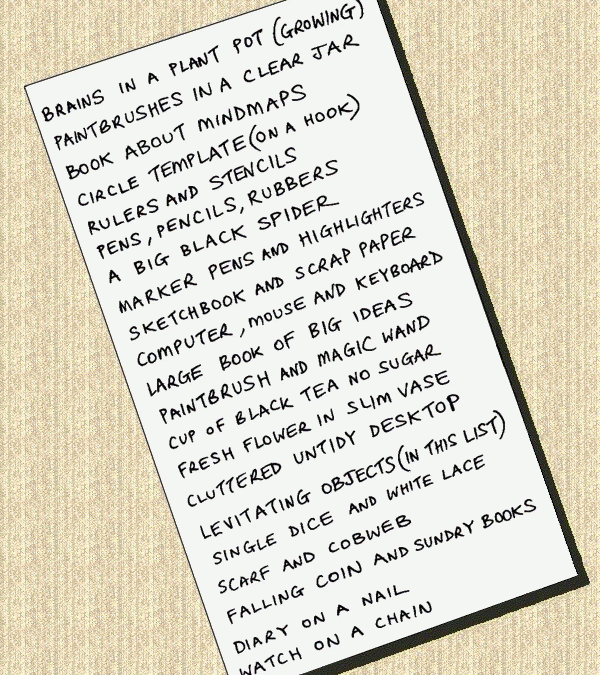 BRAINS IN A PLANT POT (GROWING)
PAINTBRUSHES IN A CLEAR JAR
BOOK ABOUT MINDMAPS
CIRCLE TEMPLATE (ON A HOOK)
RULERS AND STENCILS
PENS, PENCILS, RUBBERS
A BIG BLACK SPIDER
MARKER PENS AND HIGHLIGHTERS
SKETCHBOOK AND SCRAP PAPER
COMPUTER, MOUSE AND KEYBOARD
LARGE BOOK OF BIG IDEAS
PAINTBRUSH AND MAGIC WAND
CUP OF BLACK TEA NO SUGAR
FRESH FLOWER IN SLIM VASE
CLUTTERED UNTIDY DESKTOP
LEVITATING OBJECTS (IN THIS LIST)
SINGLE DICE AND WHITE LACE
SCARF AND COBWEB
FALLING COIN AND SUNDRY BOOKS
DIARY ON A NAIL
WATCH ON A CHAIN